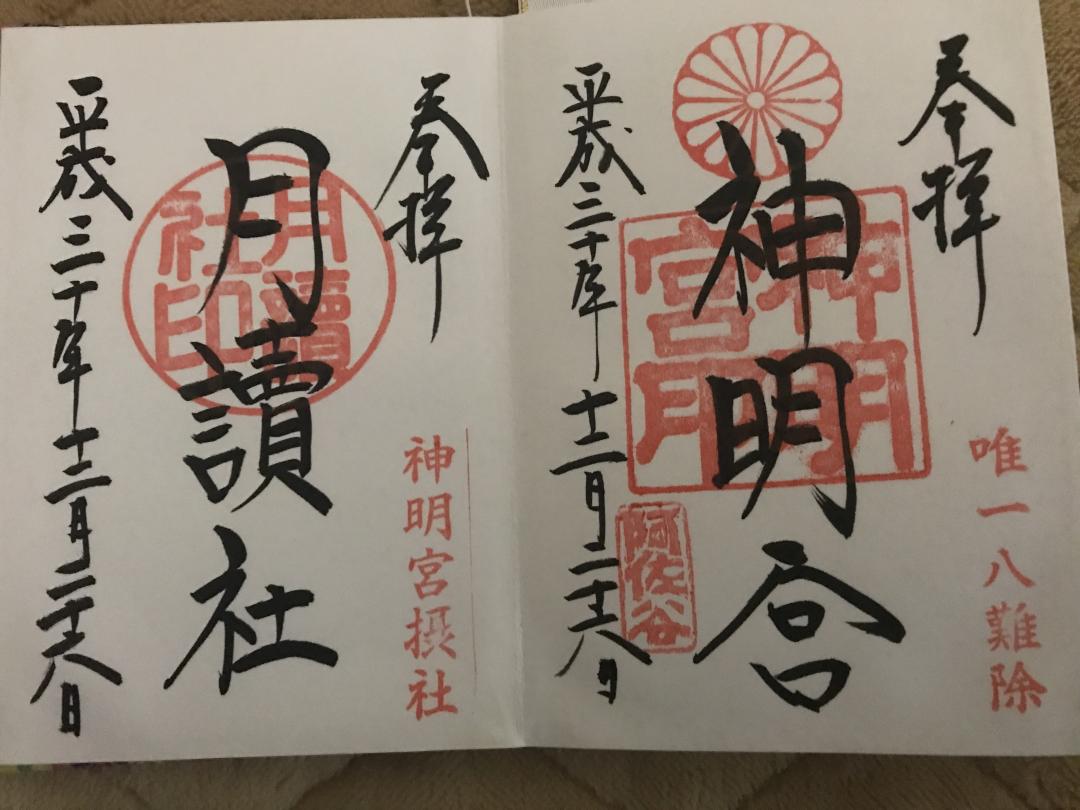 奉拝
唯一八難除
神明宮
神明
宮
阿佐谷
平成三十年十二月二十六日
奉拝
神明宮摂社
月讀社
月讀
社印
平成三十年十二月二十六日